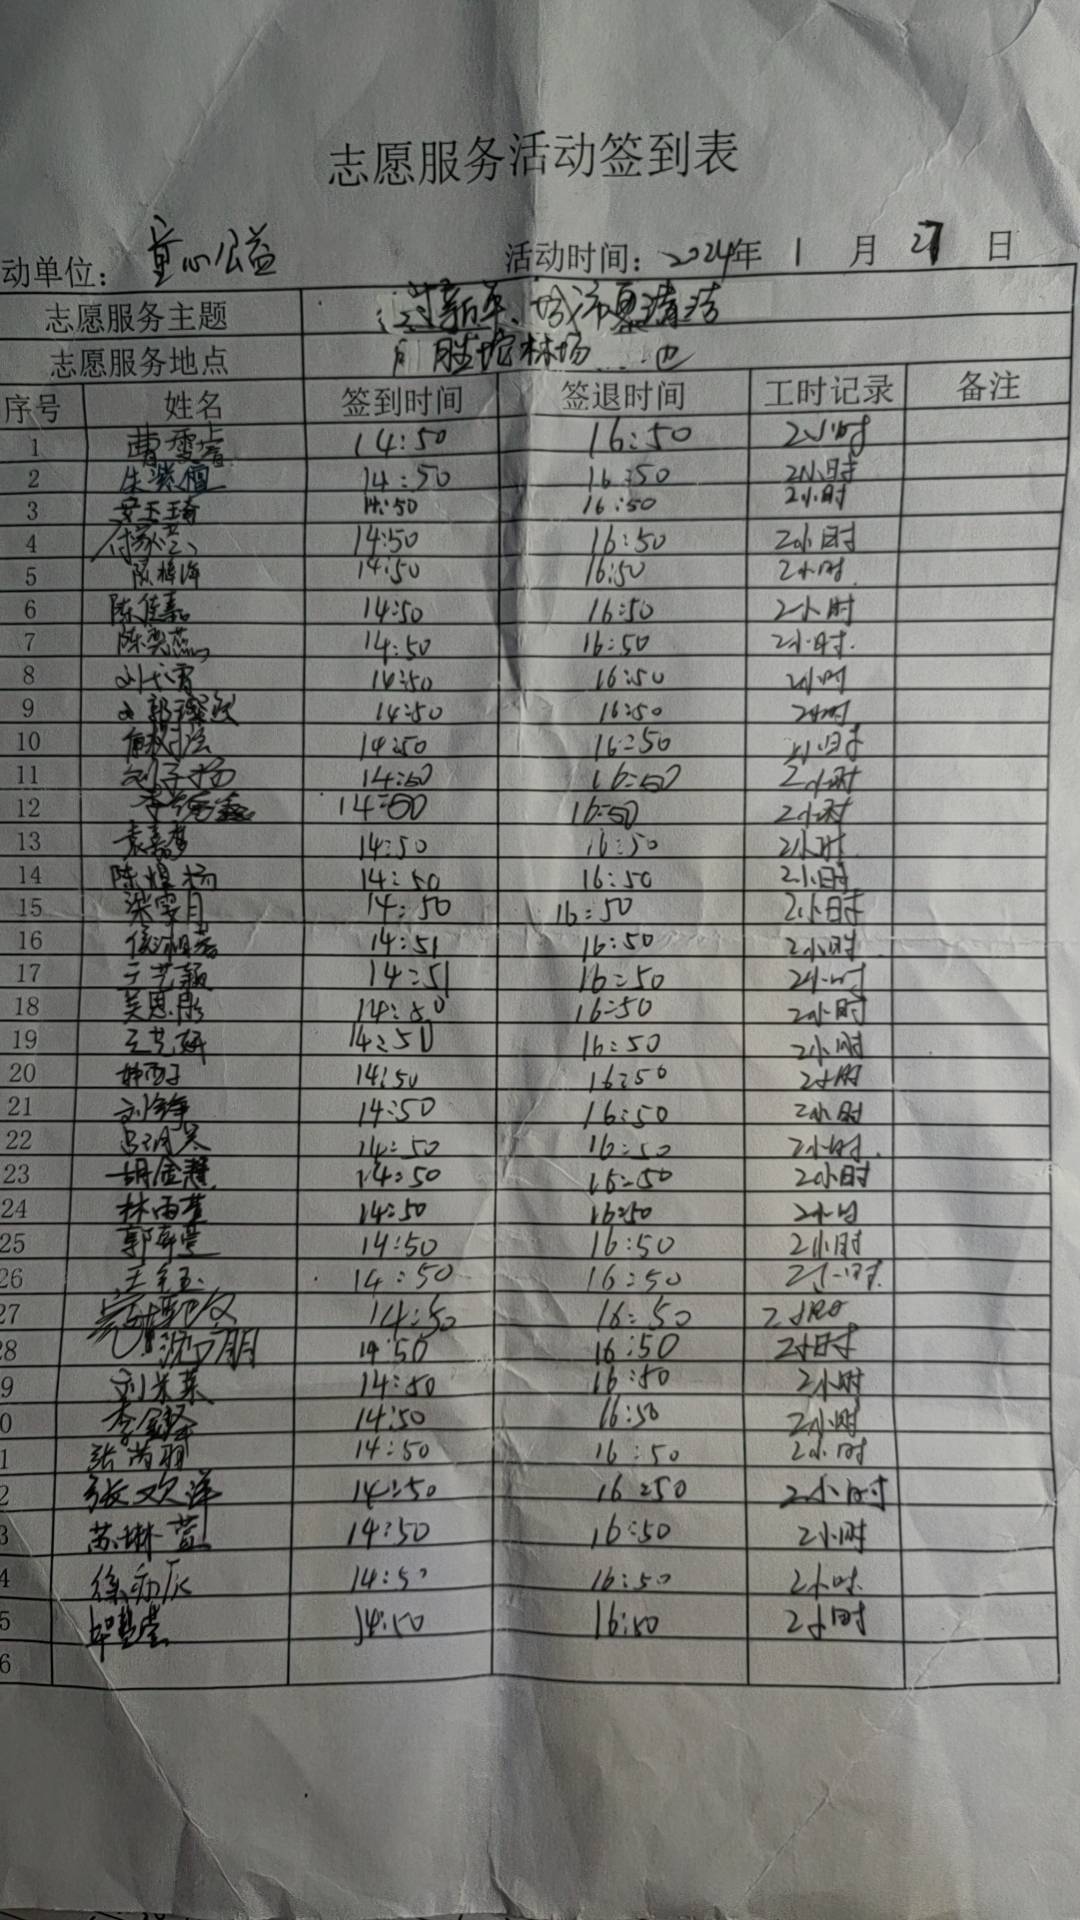 志愿服务活动签到表
动单位: 童心公益 活动时间: 2024年 1 月 27 日
志愿服务主题 过新年、城市更清洁
志愿服务地点 胜坨林场
序号 姓名 签到时间 签退时间 工时记录 备注
1 曹雯睿 14:50 16:50 2小时
2 朱紫檀 14:50 16:50 2小时
3 安玉琦 14:50 16:50 2小时
4 14:50 16:50 2小时
5 14:50 16:50 2小时
6 陈佳嘉 14:50 16:50 2小时
7 陈奕燕 14:50 16:50 2小时
8 14:50 16:50 2小时
9 14:50 16:50 2小时
10 14:50 16:50 2小时
11 刘子扬 14:50 16:50 2小时
12 14:50 16:50 2小时
13 袁嘉梦 14:50 16:50 2小时
14 陈煜扬 14:50 16:50 2小时
15 梁雯月 14:50 16:50 2小时
16 14:51 16:50 2小时
17 于艺颖 14:51 16:50 2小时
18 吴思彤 14:50 16:50 2小时
19 王艺妍 14:51 16:50 2小时
20 韩雨子 14:50 16:50 2小时
21 14:50 16:50 2小时
22 14:50 16:50 2小时
23 胡金慧 14:50 16:50 2小时
24 林雨萱 14:50 16:50 2小时
25 14:50 16:50 2小时
26 14:50 16:50 2小时
27 14:50 16:50 2小时
28 14:50 16:50 2小时
9 刘米莱 14:50 16:50 2小时
0 14:50 16:50 2小时
1 张芮羽 14:50 16:50 2小时
2 张欢洋 14:50 16:50 2小时
3 苏琳萱 14:50 16:50 2小时
4 14:50 16:50 2小时
5 14:50 16:50 2小时
6